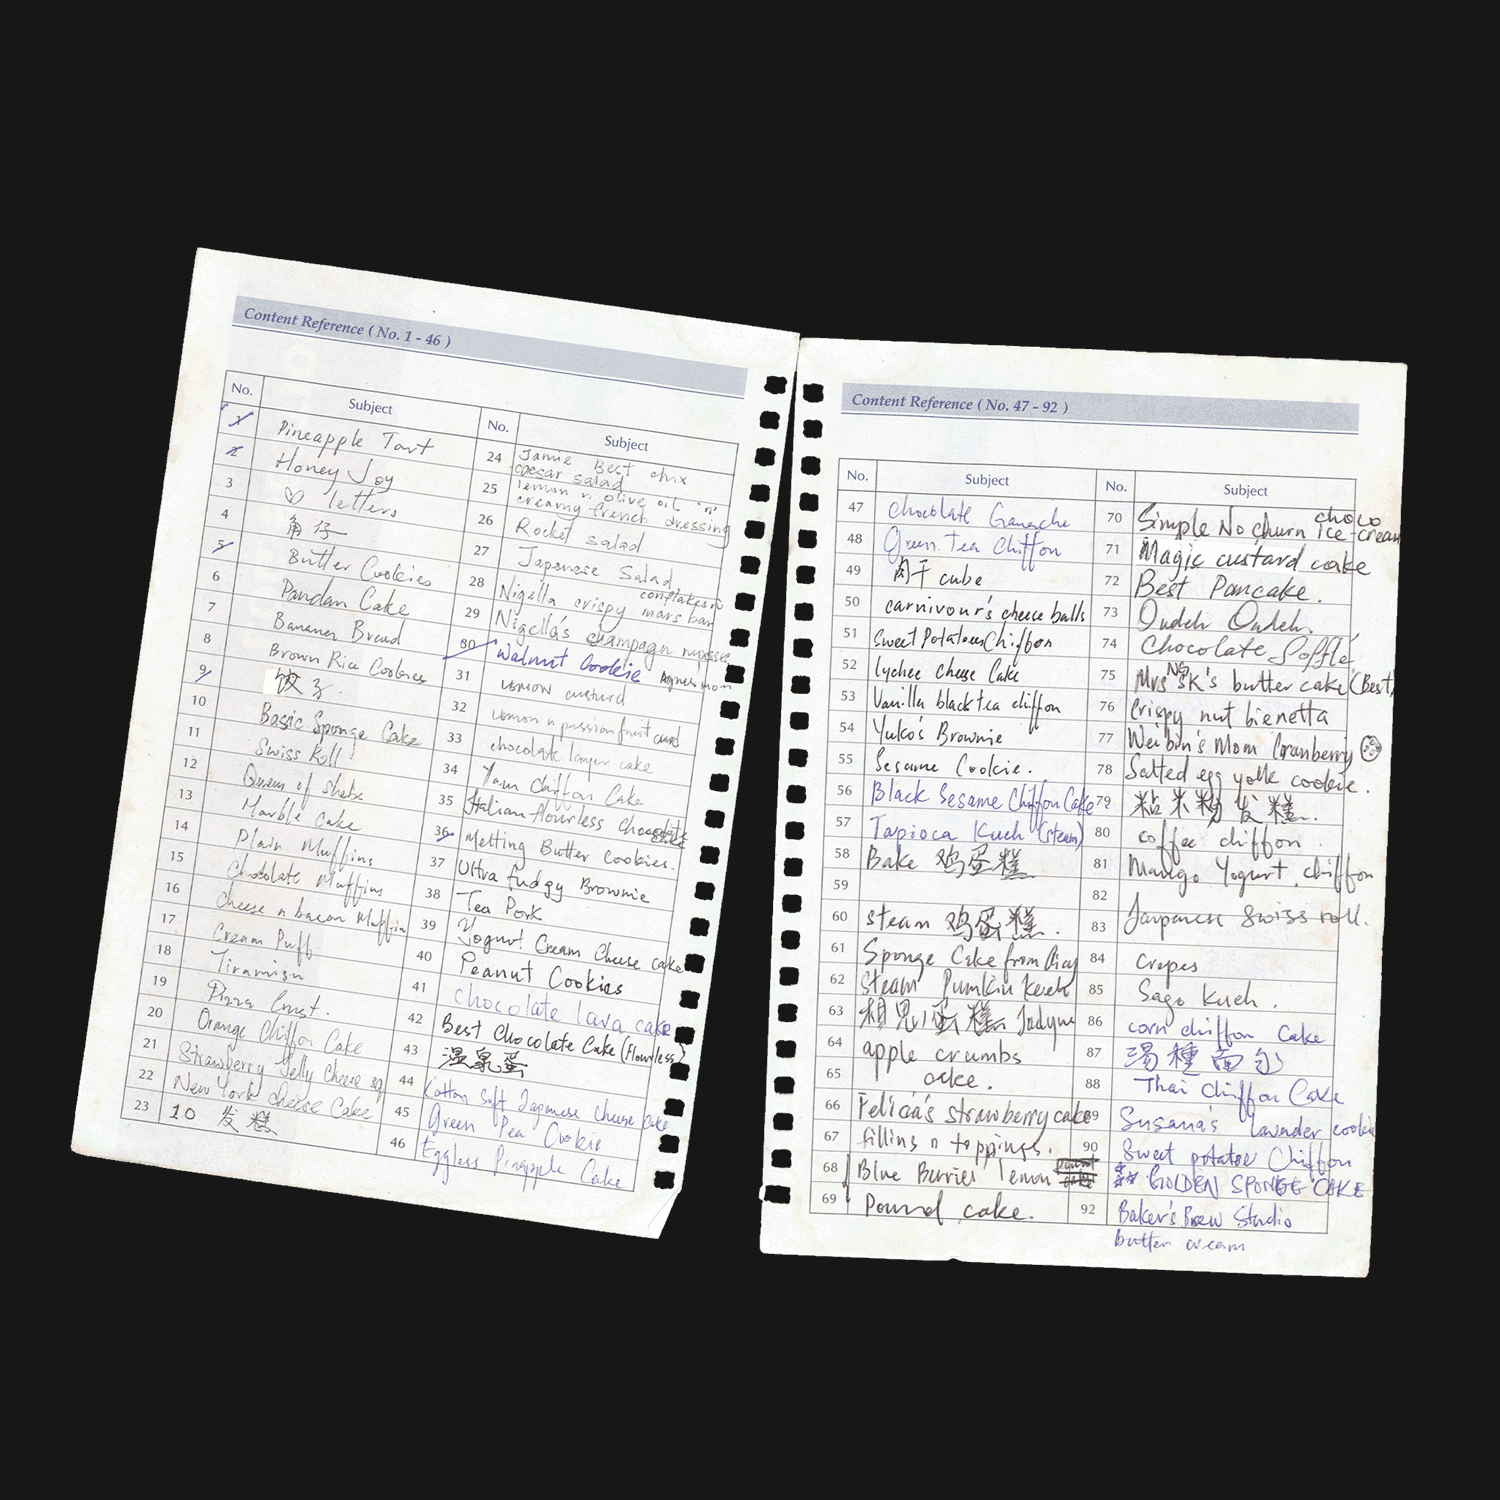 Content Reference ( No. 1 - 46 )
No. Subject
1 Pineapple Tart
2 Honey Joy
3 ♡ letters
4 角仔
5 Butter Cookies
6 Pandan Cake
7 Banana Bread
8 Brown Rice Cookies
9 饺子.
10 Basic Sponge Cake
11 Swiss Roll
12 Queen of sheba
13 Marble Cake
14 Plain Muffins
15 Chocolate Muffins
16 cheese n bacon Muffin
17 Cream Puff
18 Tiramisu
19 Pizza Crust.
20 Orange Chiffon Cake
21 Strawberry Jelly Cheese sq
22 New York cheese Cake
23 10 发糕
No. Subject
24 Jamie Best chix
caesar salad
25 lemon n olive oil 'n'
creamy french dressing
26 Rocket salad
27 Japanese Salad
28 Nigella crispy cornflakes n
mars bar
29 Nigella's champagn
30 Walnut Cookie Agnes mom
31 lemon custurd
32 lemon n passionfruit curd
33 chocolate layer cake
34 Yam Chiffon Cake
35 Italian flourless chocolate
cake
36 Melting Butter cookies.
37 Ultra fudgy Brownie
38 Tea Pork
39 Yogurt Cream Cheese cake
40 Peanut Cookies
41 chocolate lava cake
42 Best Chocolate Cake (flourless)
43 温泉蛋
44 Cotton Soft Japanese Cheese Cake
45 Green Pea Cookie
46 Eggless Pineapple Cake
Content Reference ( No. 47 - 92 )
No. Subject
47 chocolate Ganache
48 Green Tea Chiffon
49 肉干 cube
50 carnivour's cheese balls
51 sweet Potatoes Chiffon
52 lychee cheese Cake
53 Vanilla black tea chiffon
54 Yuko's Brownie
55 Sesame Cookie.
56 Black Sesame Chiffon Cake
57 Tapioca Kueh (steam)
58 Bake 鸡蛋糕
59
60 steam 鸡蛋糕.
61 Sponge Cake from
62 Steam Pumkin kueh
63 相思蛋糕
64 apple crumbs
65 cake.
66 Felicia's strawberry cake
67 fillins n toppings.
68 Blue Berries lemon
69 Pound cake.
No. Subject
70 Simple No churn choco
ice-cream
71 Magic custard cake
72 Best Pancake.
73 Ondeh Ondeh.
74 Chocolate Soffle
75 Mrs NgSK's butter cake (Best)
76 Crispy nut bienetta
77 Weibin's Mom Cranberry
78 Salted egg yolk cookie.
79 粘米粉发糕.
80 coffee chiffon.
81 Mango Yogurt chiffon
82
83 Japanese Swiss roll.
84 crepes
85 Sago Kueh.
86 corn chiffon Cake
87 湯種面包
88 Thai Chiffon Cake
89 Susana's lavander cookie
90 Sweet potatoe Chiffon
GOLDEN SPONGE CAKE
92 Baker's Brew Studio
butter cream